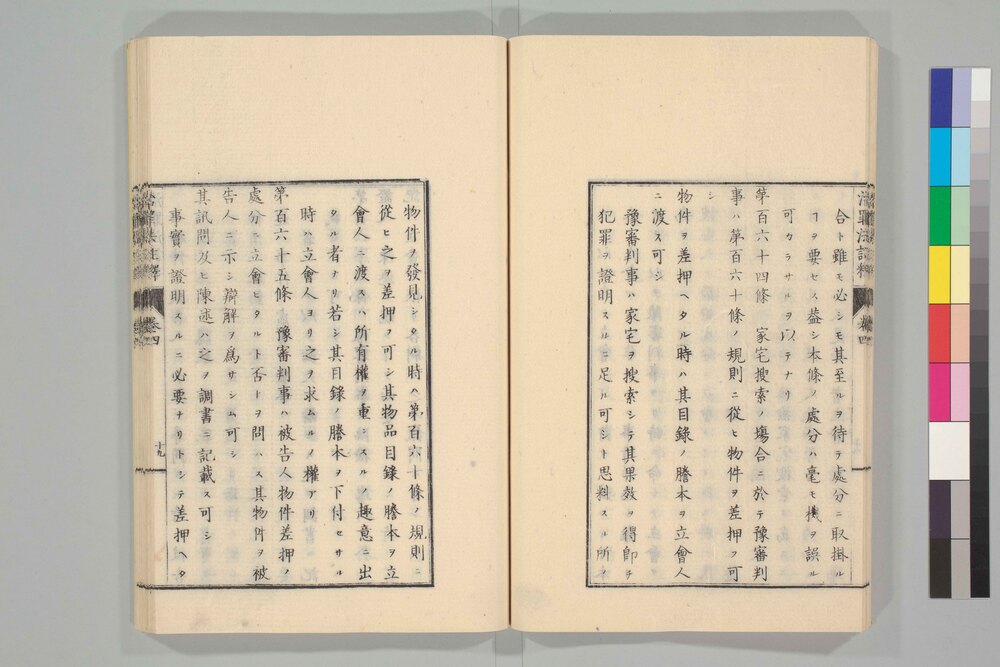 合ト雖モ必シモ其至ルヲ待テ處分ニ取掛ル
ヿヲ要セス蓋シ本條ノ處分ハ毫モ機ヲ誤ル
可カラサルヲ以テナリ
第百六十四條 家宅搜索ノ塲合ニ於テ豫審判
事ハ第百六十條ノ規則ニ從ヒ物件ヲ差押フ可
シ
物件ヲ差押ヘタル時ハ其目錄ノ謄本ヲ立會人
ニ渡ス可シ
豫審判事ハ家宅ヲ搜索シテ其果效ヲ得卽チ
犯罪ヲ證明スルニ足ル可シト思料スル所ノ
物件ヲ發見シタル時ハ第百六十條ノ規則ニ
從ヒ之ヲ差押フ可シ其物品目錄ノ謄本ヲ立
會人ニ渡スハ所有權ヲ重ンスルノ趣意ニ出
タル者ナリ若シ其目錄ノ謄本ヲ下付セサル
時ハ立會人ヨリ之ヲ求ムルノ權アリ
第百六十五條 豫審判事ハ被告人物件差押ノ
處分ニ立會ヒタルト否トヲ問ハス其物件ヲ被
告人ニ示シ辯解ヲ爲サシム可シ
其訊問及ヒ陳述ハ之ヲ調書ニ記載ス可シ
事實ヲ證明スルニ必要ナリトシテ差押ヘタ
治罪法註釋
卷四
十九